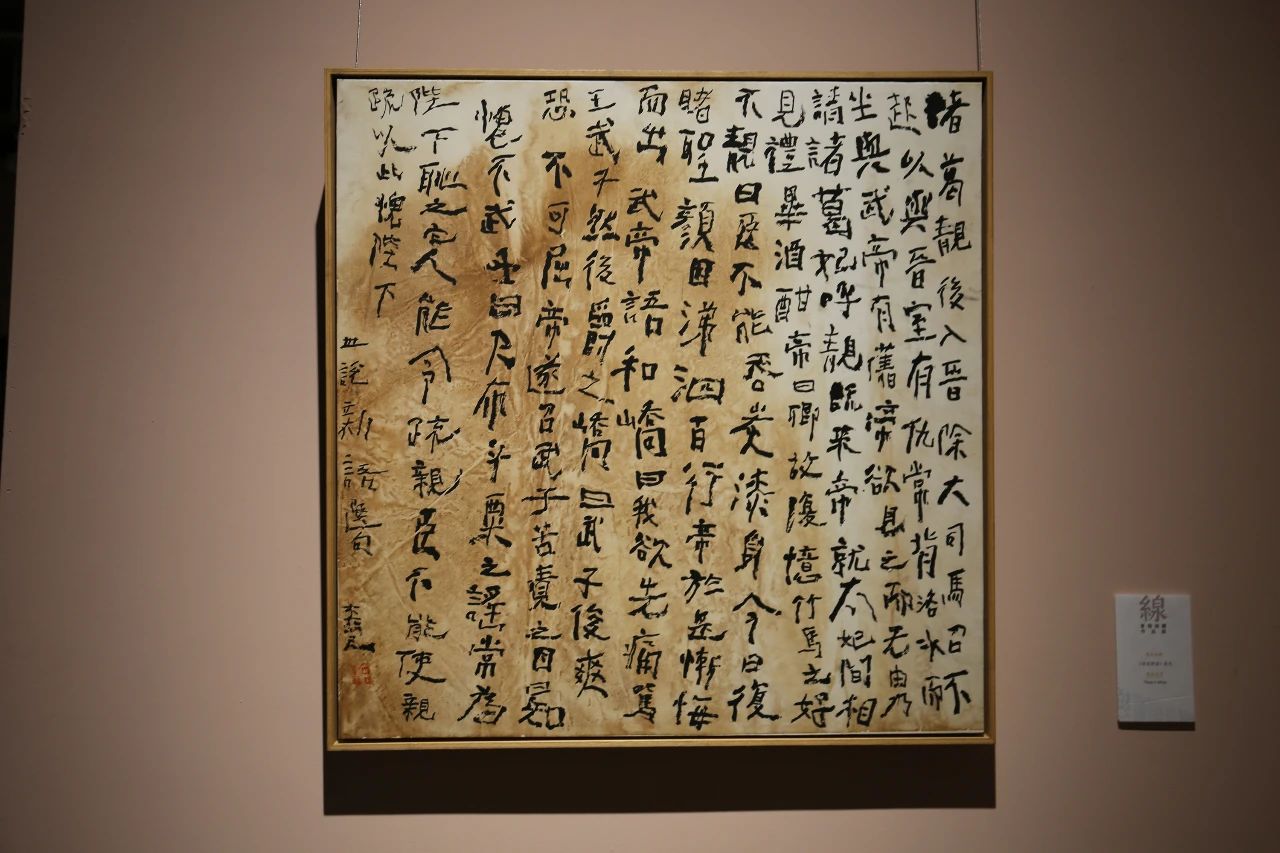 諸葛靚後入晉除大司馬召不
起以與晉室有仇常背洛水而
坐與武帝有舊帝欲見之而无由乃
請諸葛妃呼靚既來帝就太妃間相
見禮畢酒酣帝曰卿故復憶竹馬之好
不靚曰臣不能吞炭漆身今日復
睹聖顏因涕泗百行帝於是慚悔
而出 武帝語和嶠曰我欲先痛罵
王武子然後爵之嶠曰武子俊爽
恐不可屈帝遂召武子苦責之因曰知
愧不武子曰尺布斗粟之謠常為
陛下耻之它人能令疏親臣不能使親
疏以此愧陛下
世說新語選句
線